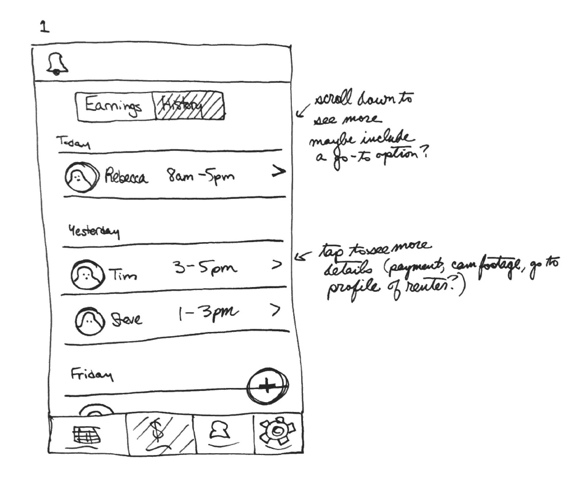 1
Earnings History
Today
Rebecca 8am-5pm >
Yesterday
Tim 3-5pm >
Steve 1-3pm >
Friday
+
$
scroll down to
see more
maybe include
a go-to option?
tap to see more
details (payment, cam footage, go to
profile of renter?)